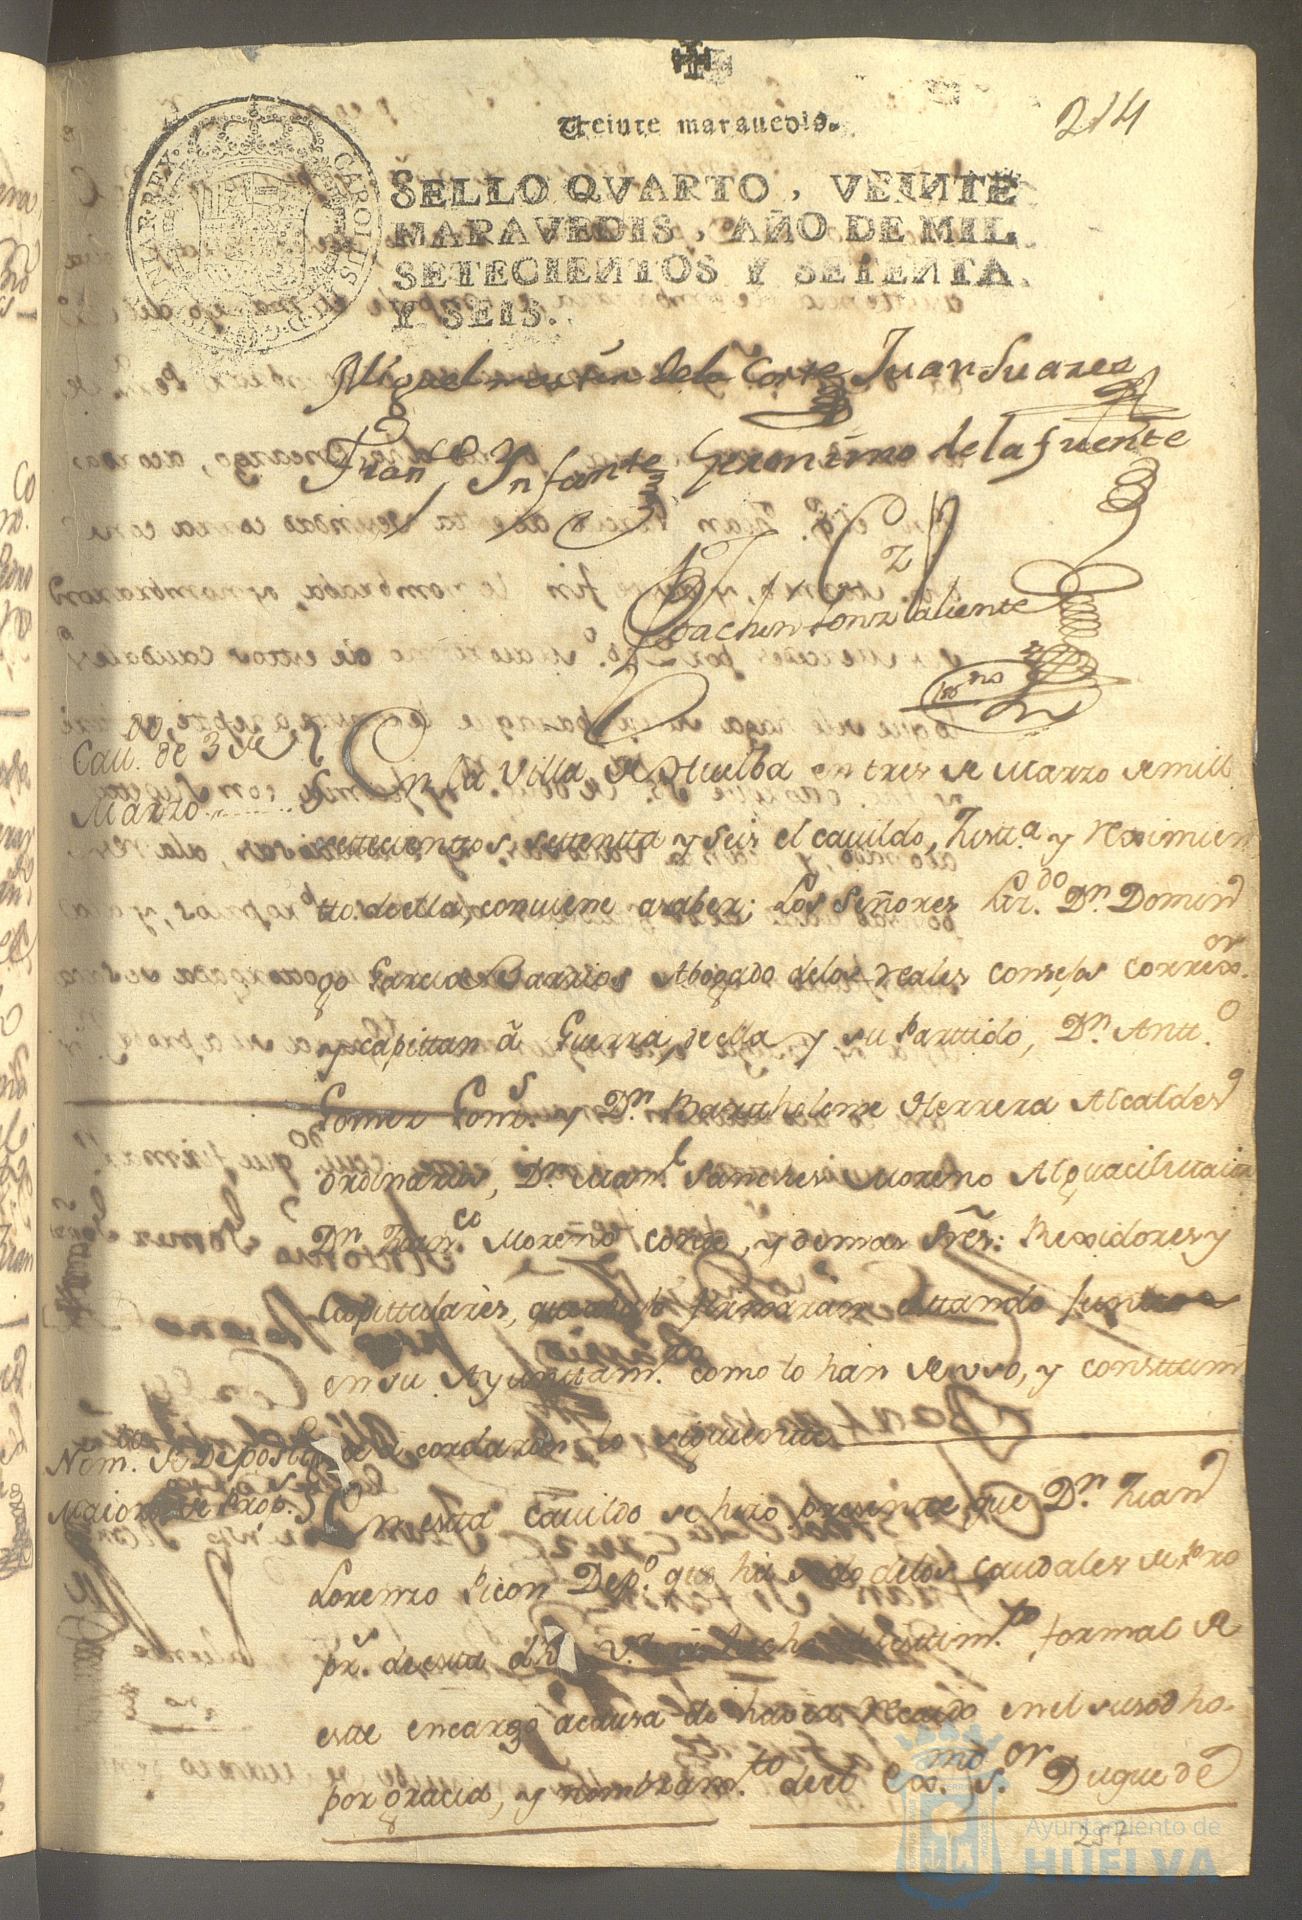 Veinte maravedis.
214
SELLO QVARTO, VEINTE
MARAVEDIS, AÑO DE MIL
SETECIENTOS Y SETENTA
Y SEIS.
CAROLUS III D. G. HISPANIAR. REX
Miguel martin de la Corte Juan Suarez
Franco Infante Geronimo de la fuente
Joachin Valiente
Cavdo. de 3 de
Marzo
En la Villa de Huelba en tres de Marzo de mill
settecienttos settentta y seis el cavildo, Justta. y reximien
tto. de ella, conviene a saber; Los Señores Lizdo. Dn. Domin
go Garcia Barrios Abogado delos reales consejos correxor.
y capittan â Guerra, de ella y su Parttido, Dn. Antto.
Gomez Gonzs. y Dn. Bartholome Herrera Alcaldes
ordinarios, Dn. Manl. Sanchez Moreno Alguacil maior
Dn. Franco. Moreno Conde, y demas Sres. Rexidores y
Capittulares, que abajo firmaran esttando junttos
en su Ayunttam. como lo han de uso, y consttum
Nomto. de Deposito
que acordaron lo siguiente
Maiormo. de Prop.s
En estte cavildo se hizo presente, que Dn. Juan
Lorenzo Picon Depo. que ha sido delos caudales de Pro
ps. de esta dha va. formal de
este encargo acausa de havia recaido en el susodho.
por gracia, y nombramto. de el Exmo. Sor. Duque de
257
Ayuntamiento de
HUELVA